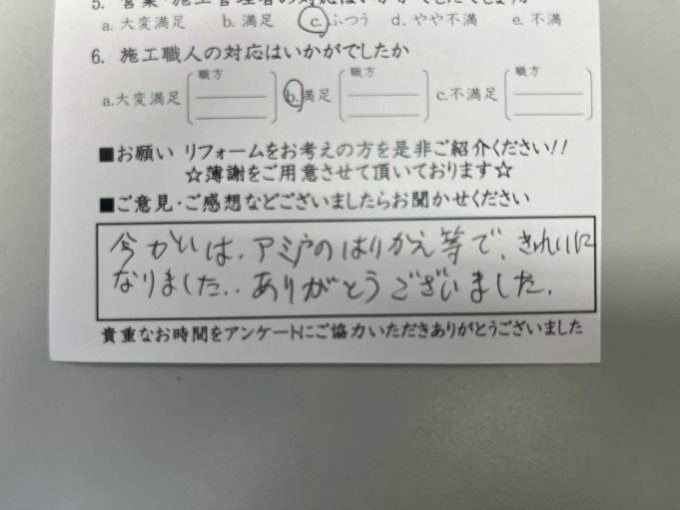 5. 営業・施工管理者の対応はいかがでしたでしょうか
a.大変満足 b.満足 c.ふつう d.やや不満 e.不満
6. 施工職人の対応はいかがでしたか
a.大変満足 職方 b.満足 職方 c.不満足 職方
■お願い リフォームをお考えの方を是非ご紹介ください!!
☆薄謝をご用意させて頂いております☆
■ご意見・ご感想などございましたらお聞かせください
今かいは、アミ戸のはりかえ等で、きれいに
なりました.. ありがとうございました.
貴重なお時間をアンケートにご協力いただきありがとうございました